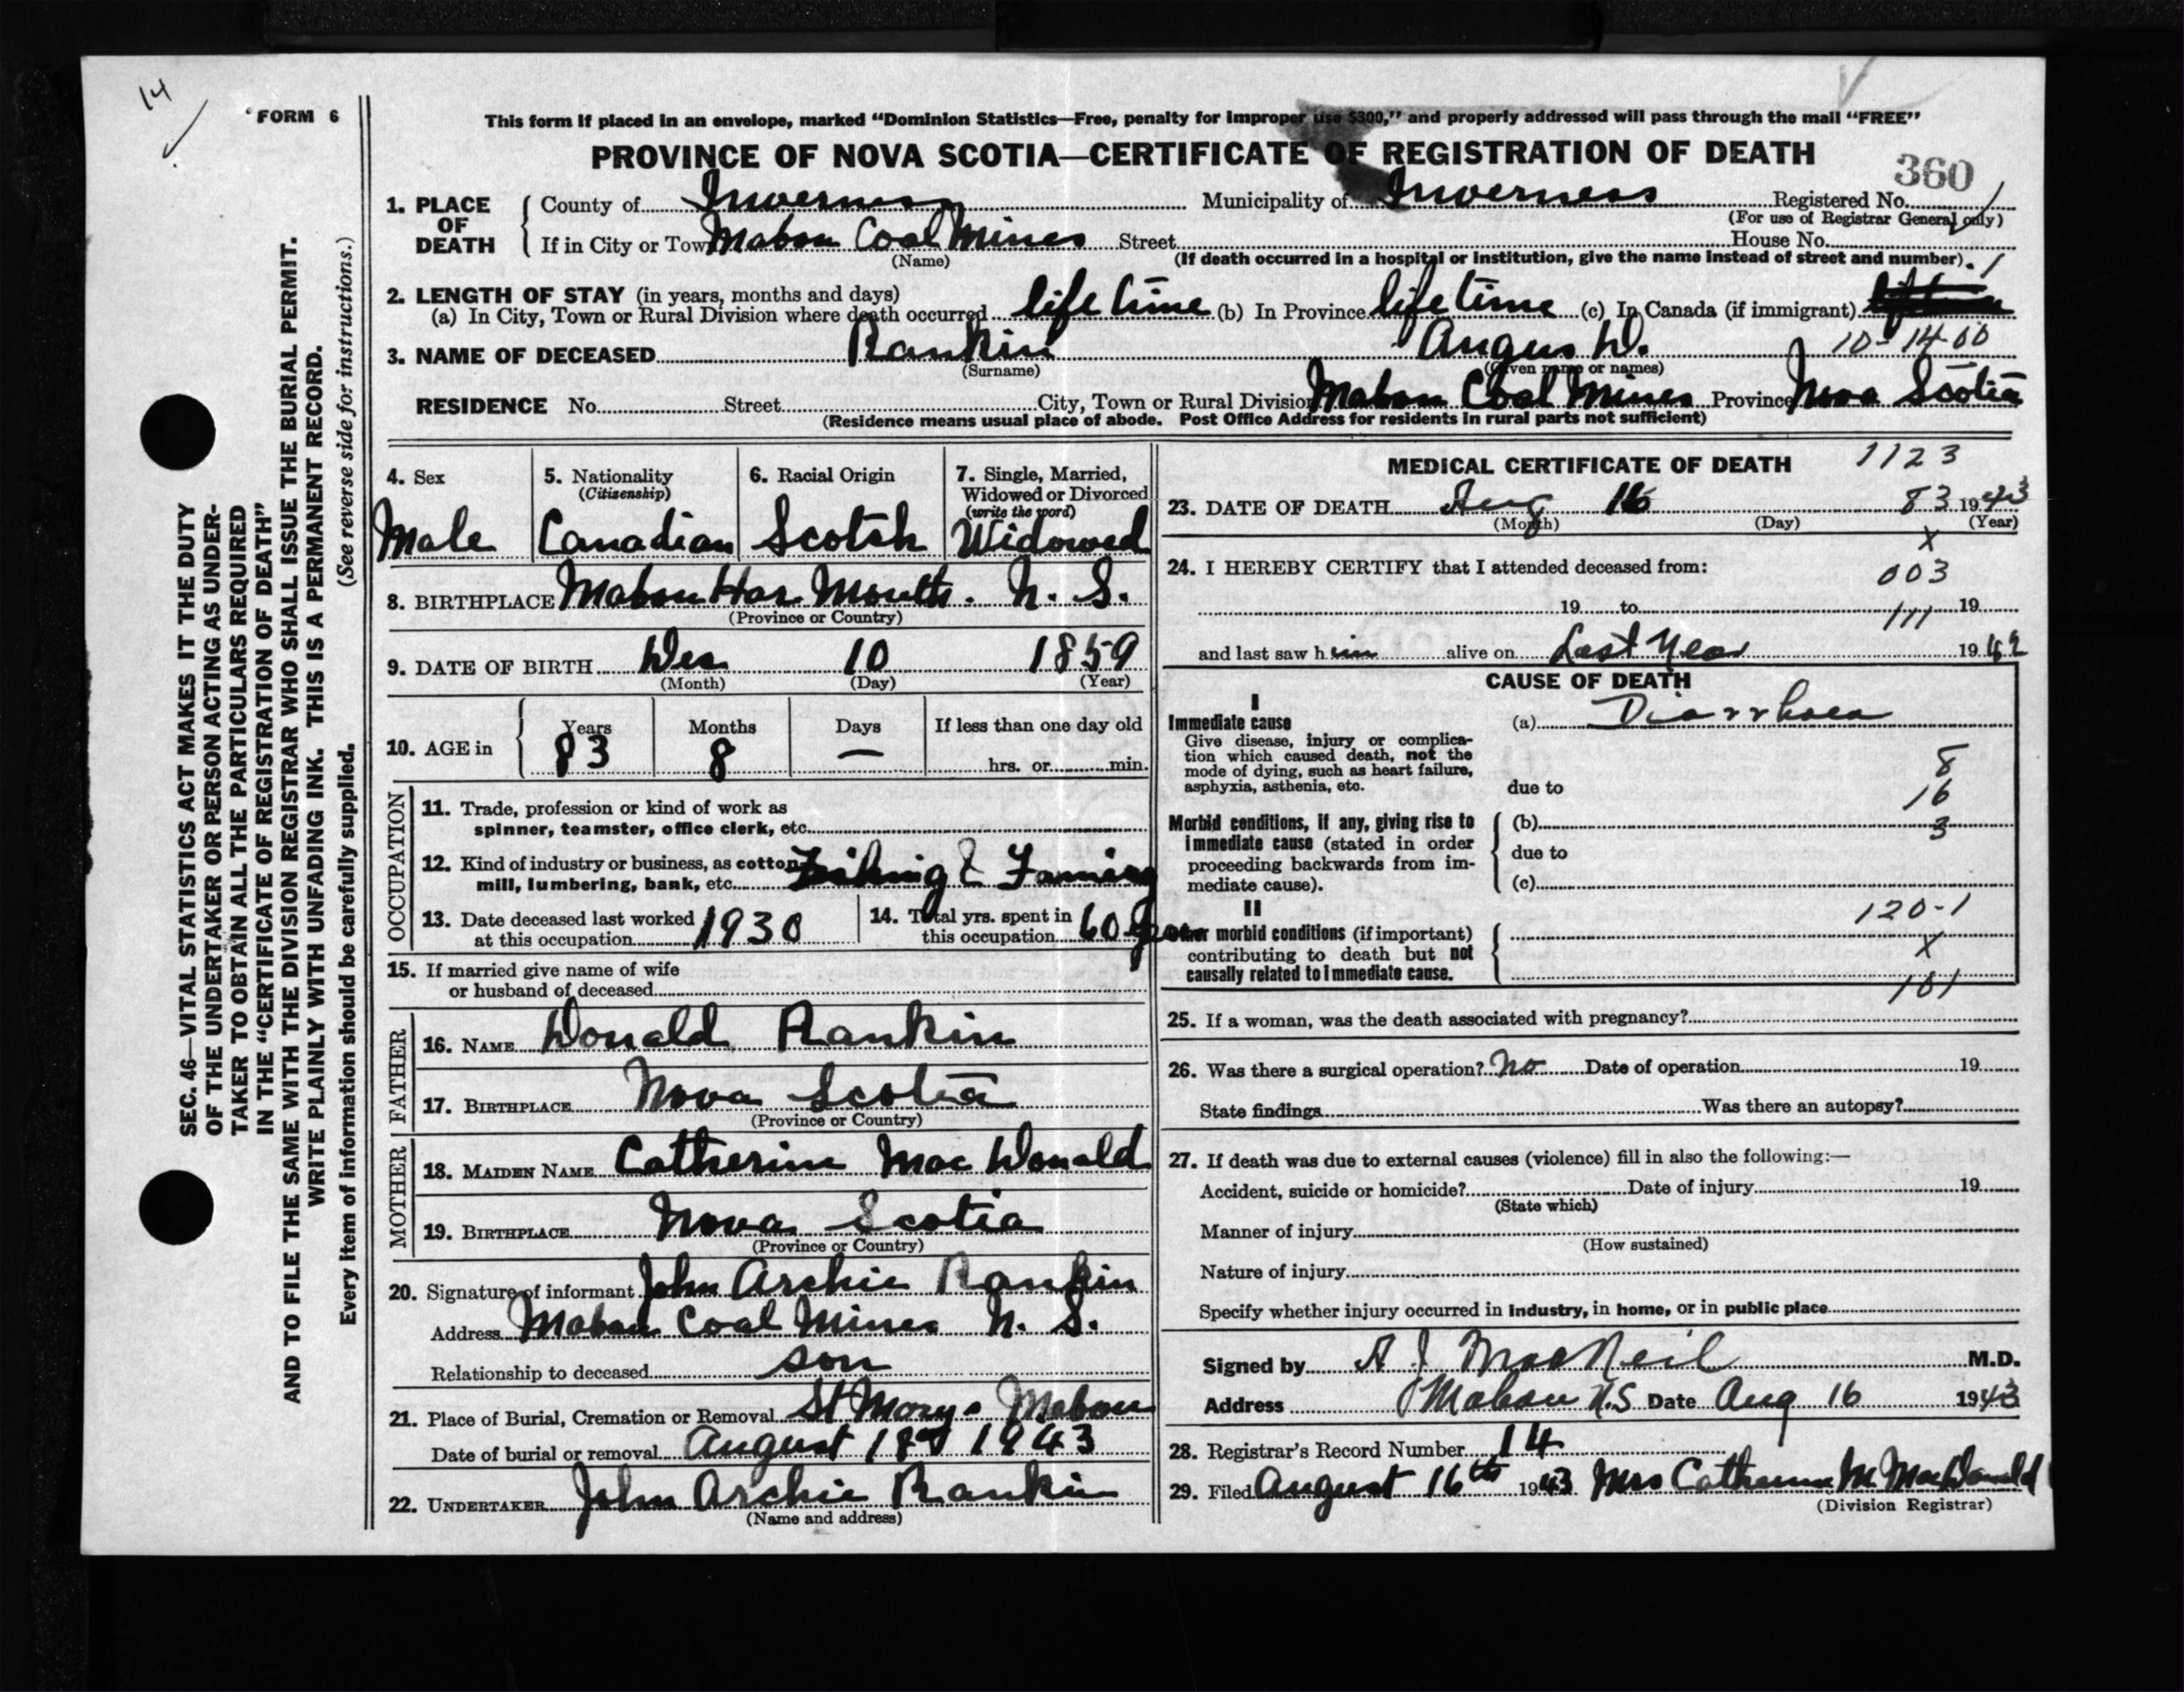 14
FORM 6
This form if placed in an envelope, marked “Dominion Statistics—Free, penalty for improper use $300,” and properly addressed will pass through the mail “FREE”
PROVINCE OF NOVA SCOTIA—CERTIFICATE OF REGISTRATION OF DEATH
360
1. PLACE OF DEATH
County of Inverness Municipality of Inverness Registered No.
(For use of Registrar General only)
If in City or Tow Mabou Coal Mines Street House No.
(Name)
(If death occurred in a hospital or institution, give the name instead of street and number). 1
2. LENGTH OF STAY (in years, months and days)
(a) In City, Town or Rural Division where death occurred life time (b) In Province life time (c) In Canada (if immigrant)
3. NAME OF DECEASED Rankin Angus D. 10-14-00
(Surname) (Given name or names)
RESIDENCE No. Street City, Town or Rural Division Mabou Coal Mines Province Nova Scotia
(Residence means usual place of abode. Post Office Address for residents in rural parts not sufficient)
4. Sex
Male
5. Nationality
(Citizenship)
Canadian
6. Racial Origin
Scotch
7. Single, Married,
Widowed or Divorced
(write the word)
Widowed
8. BIRTHPLACE Mabou Har Mouth. N. S.
(Province or Country)
9. DATE OF BIRTH Dec 10 1859
(Month) (Day) (Year)
10. AGE in
Years Months Days If less than one day old
83 8 — hrs. or min.
OCCUPATION
11. Trade, profession or kind of work as
spinner, teamster, office clerk, etc.
12. Kind of industry or business, as cotton
mill, lumbering, bank, etc. Fishing & Farming
13. Date deceased last worked
at this occupation 1930
14. Total yrs. spent in
this occupation 60 years
15. If married give name of wife
or husband of deceased
FATHER
16. NAME Donald Rankin
17. BIRTHPLACE Nova Scotia
(Province or Country)
MOTHER
18. MAIDEN NAME Catherine Mac Donald
19. BIRTHPLACE Nova Scotia
(Province or Country)
20. Signature of informant John Archie Rankin
Address Mabou Coal Mines N. S.
Relationship to deceased son
21. Place of Burial, Cremation or Removal St Marys Mabou
Date of burial or removal August 18 1943
22. UNDERTAKER John Archie Rankin
(Name and address)
MEDICAL CERTIFICATE OF DEATH 1123
23. DATE OF DEATH Aug 16 83 1943
(Month) (Day) (Year)
X
24. I HEREBY CERTIFY that I attended deceased from:
003
19 to 19
111
and last saw h im alive on Last Year 1942
CAUSE OF DEATH
I
Immediate cause (a) Diarrhoea
Give disease, injury or complica-
tion which caused death, not the
mode of dying, such as heart failure,
asphyxia, asthenia, etc.
due to
8
16
3
Morbid conditions, if any, giving rise to
immediate cause (stated in order
proceeding backwards from im-
mediate cause).
(b)
due to
(c)
II
Other morbid conditions (if important)
contributing to death but not
causally related to immediate cause.
120-1
X
101
25. If a woman, was the death associated with pregnancy?
26. Was there a surgical operation? No Date of operation 19
State findings Was there an autopsy?
27. If death was due to external causes (violence) fill in also the following:—
Accident, suicide or homicide? Date of injury 19
(State which)
Manner of injury
(How sustained)
Nature of injury
Specify whether injury occurred in industry, in home, or in public place
Signed by A J MacNeil M.D.
Address Mabou N.S Date Aug 16 1943
28. Registrar's Record Number 14
29. Filed August 16th 1943 Mrs Catherine M. MacDonald
(Division Registrar)
SEC. 46—VITAL STATISTICS ACT MAKES IT THE DUTY
OF THE UNDERTAKER OR PERSON ACTING AS UNDER-
TAKER TO OBTAIN ALL THE PARTICULARS REQUIRED
IN THE “CERTIFICATE OF REGISTRATION OF DEATH”
AND TO FILE THE SAME WITH THE DIVISION REGISTRAR WHO SHALL ISSUE THE BURIAL PERMIT.
WRITE PLAINLY WITH UNFADING INK. THIS IS A PERMANENT RECORD.
Every item of information should be carefully supplied. (See reverse side for instructions.)